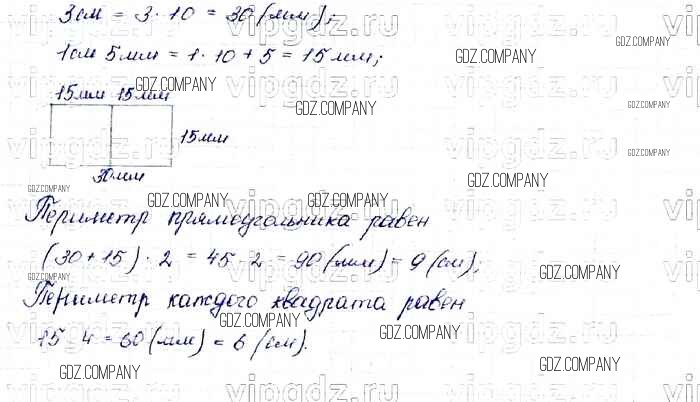 3см = 3 · 10 = 30 (мм);
1см 5мм = 1 · 10 + 5 = 15мм;
15мм 15мм
15мм
30мм
Периметр прямоугольника равен
(30 + 15) · 2 = 45 · 2 = 90 (мм) = 9 (см);
Периметр каждого квадрата равен
15 · 4 = 60 (мм) = 6 (см).
GDZ.COMPANY
vipgdz.ru